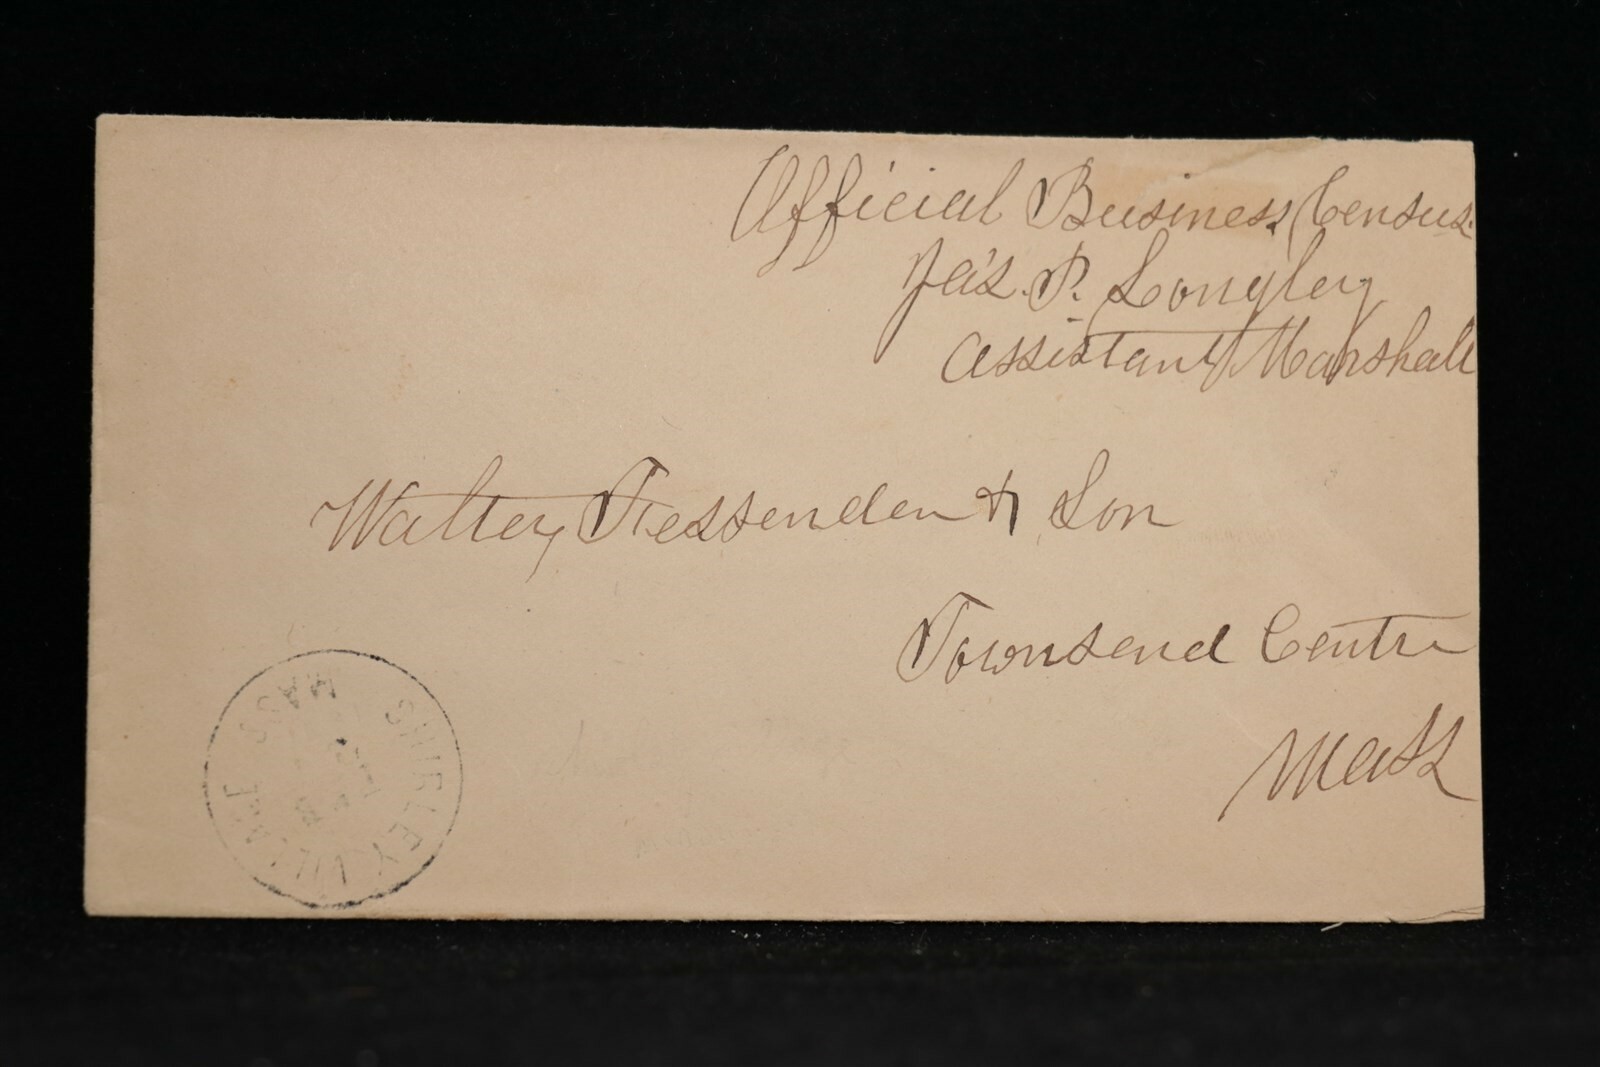 Official Business, Census.
Jas. P. Longley
Assistant Marshall
Walter Fessenden & Son
Townsend Centre
Mass
SHIRLEY VILLAGE MASS